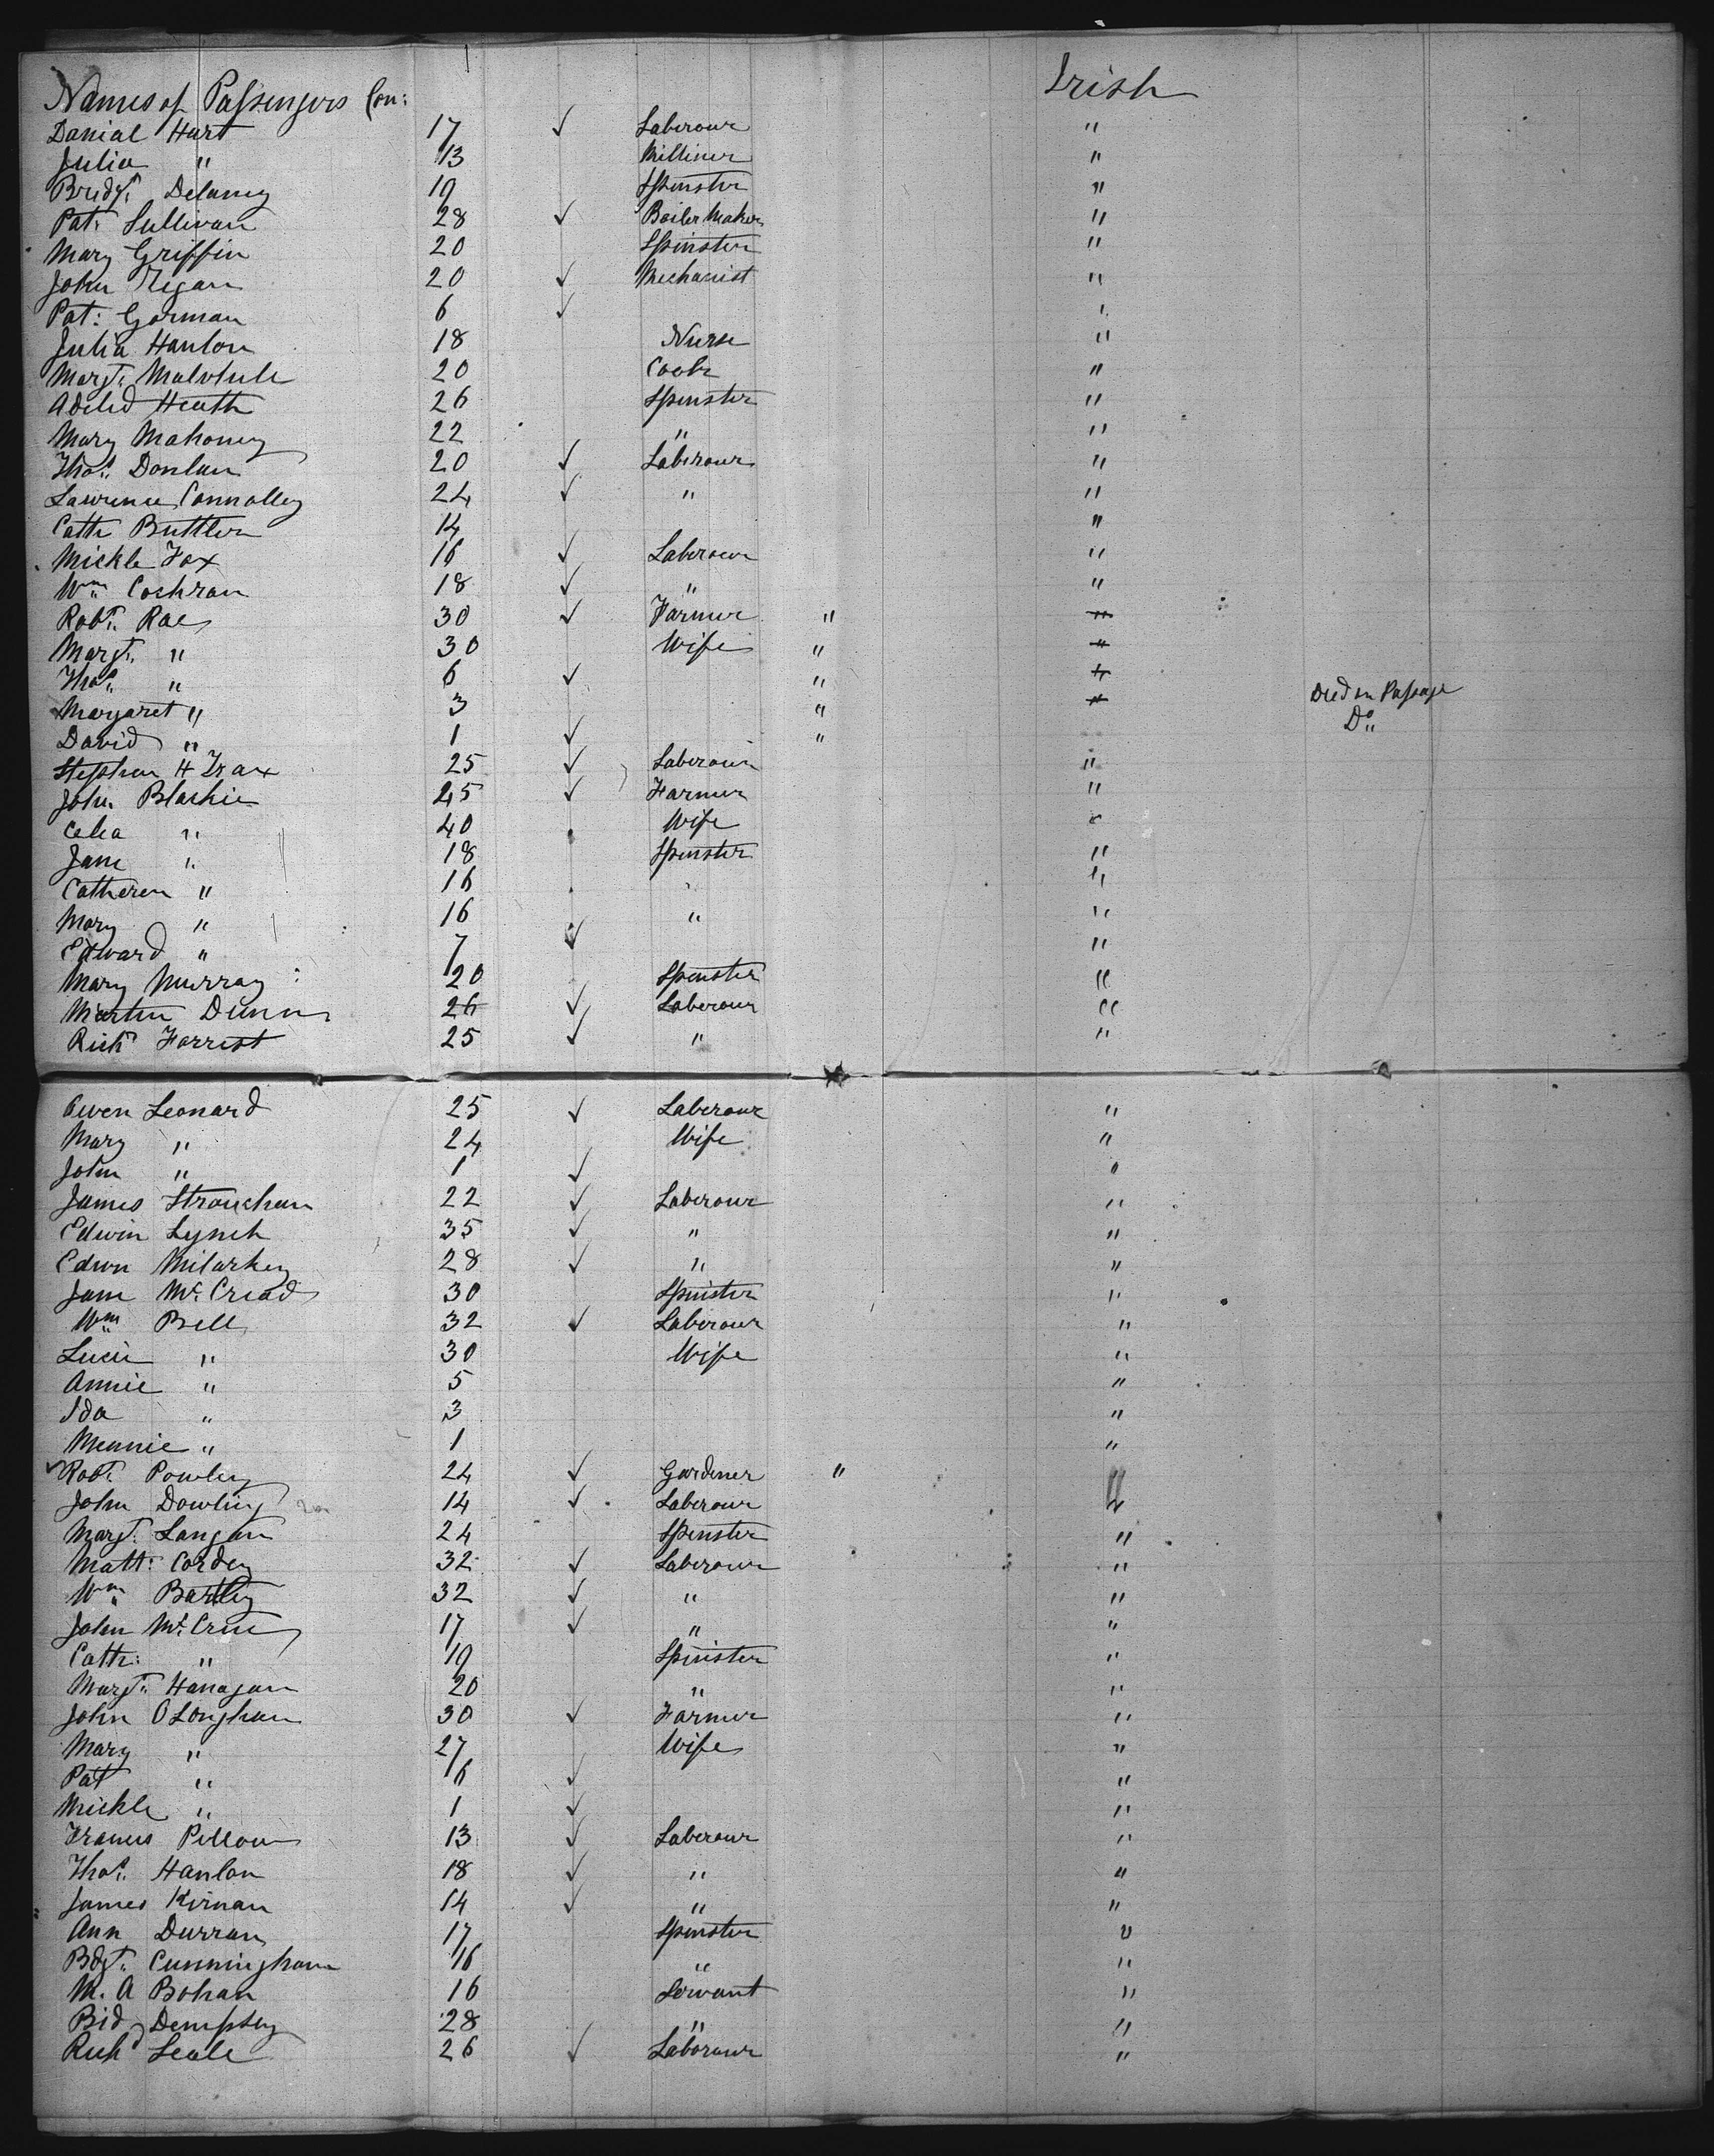 Names of Passengers Con: Irish
Danial Hart 17 ✓ Laberour "
Julia " 13 Milliner "
Bridgt. Delaney 19 Spinster "
Pat: Sullivan 28 ✓ Boiler Maker "
Mary Griffin 20 Spinster "
John Regan 20 ✓ Mechanist "
Pat: Gorman 6 ✓ "
Julia Hanlon 18 Nurse "
Margt. 20 Cook "
Adelid Heath 26 Spenster "
Mary Mahoney 22 " "
Thos. Donlan 20 ✓ Laberour "
Lawrence Connolley 24 ✓ " "
Cath Buttler 14 "
Mickle Fox 16 ✓ Laberour "
Wm Cochran 18 ✓ " "
Robt. Rae 30 ✓ Farmer " "
Margt. " 30 Wife " "
Thos. " 6 ✓ " "
Margaret " 3 " " Died on Passage
David " 1 ✓ " Do
Stephen H 25 ✓ Laberour "
John Blackie 45 ✓ Farmer "
Celia " 40 Wife "
Jane " 18 Spenster "
Catheren " 16 " "
Mary " 16 " "
Edward " 7 ✓ "
Mary Murray 20 Spenster "
Martin Dunn 26 ✓ Laberour "
Rich Forrest 25 ✓ " "
Owen Leonard 25 ✓ Laberour "
Mary " 24 Wife "
John " 1 ✓ "
James Strouchan 22 ✓ Laberour "
Edwin Lynch 35 ✓ " "
Edwn Milarkey 28 ✓ " "
Jane Mc.Cread 30 Spinster "
Wm Bell 32 ✓ Laberour "
Lucie " 30 Wife "
Annie " 5 "
Ida " 3 "
Mennie " 1 "
✓ Robt. Powley 24 ✓ Gardener " "
John Dowling 14 ✓ Laberour "
Margt. Langan 24 Spenster "
Matt: Cordey 32 ✓ Laberour "
Wm Bartley 32 ✓ " "
John Mc. 17 ✓ " "
Cath: " 19 Spinster "
Margt. Hanagan 20 " "
John OLonghan 30 ✓ Farmer "
Mary " 27 Wife "
Pat " 6 ✓ "
Mickle " 1 ✓ "
Frances Pillow 13 ✓ Laberour "
Thos. Hanlon 18 ✓ " "
James Kirnan 14 ✓ " "
Ann Durran 17 Spinster "
Bdgt. Cunningham 16 " "
M. A Bohan 16 Servant "
Bid Dempsey 28 " "
Rich Leale 26 ✓ Laborour "